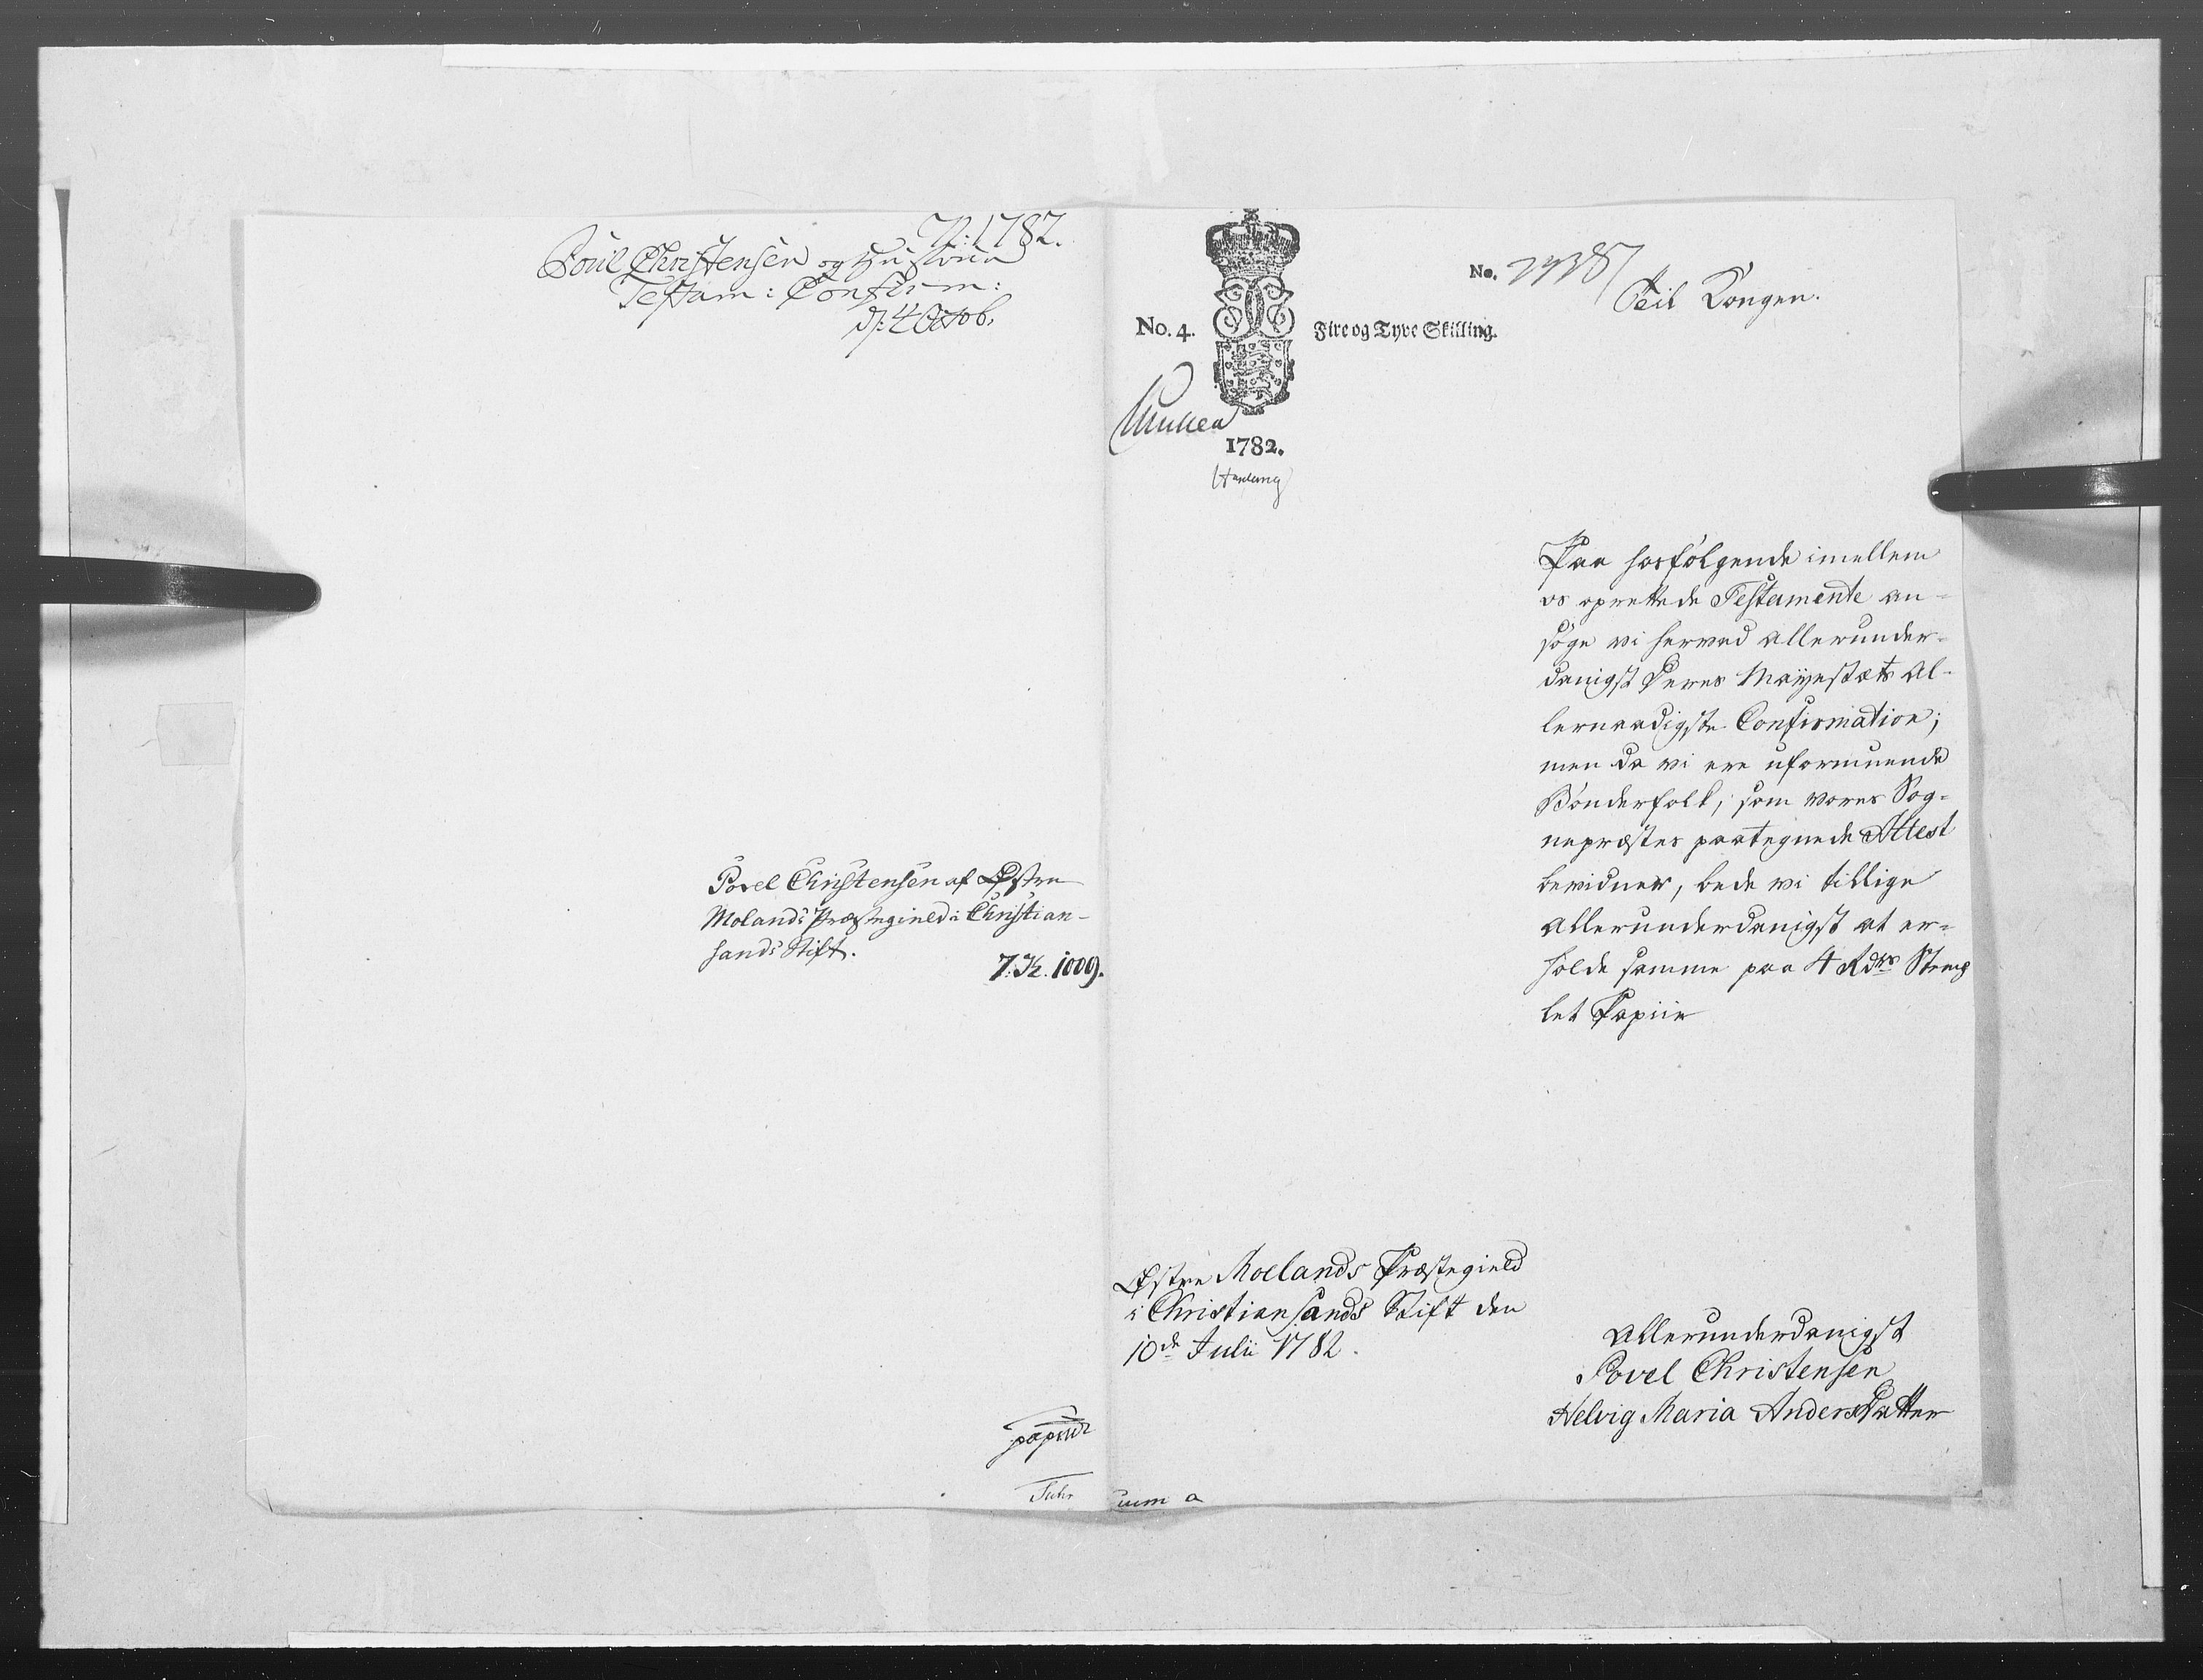 N: 1782.
Poul Christensen og Hustrues
Testam: Confirm:
d: 4 Octob.
Povel Christensen af Østre
Molands Præstegield i Christian-
sands Stift.
7. K. 1009.
No. 4.
Fire og Tyve Skilling.
1782.
No. 2738
Til Kongen.
Paa hosfølgende imellem
os oprettede Testamente an-
søge vi herved allerunder-
danigst Deres Mayestæts Al-
lernaadigste Confirmation;
men da vi ere uformuende
Bønderfolk, som vores Sog-
nepræstes paategnede Attest
bevidner, bede vi tillige
allerunderdanigst at er-
holde samme paa 4 Rdrs Stemp
let Papiir
Østre Molands Præstegield
i Christiansands Stift den
10de Julii 1782.
Allerunderdanigst
Povel Christensen
Helvig Maria Anders Datter